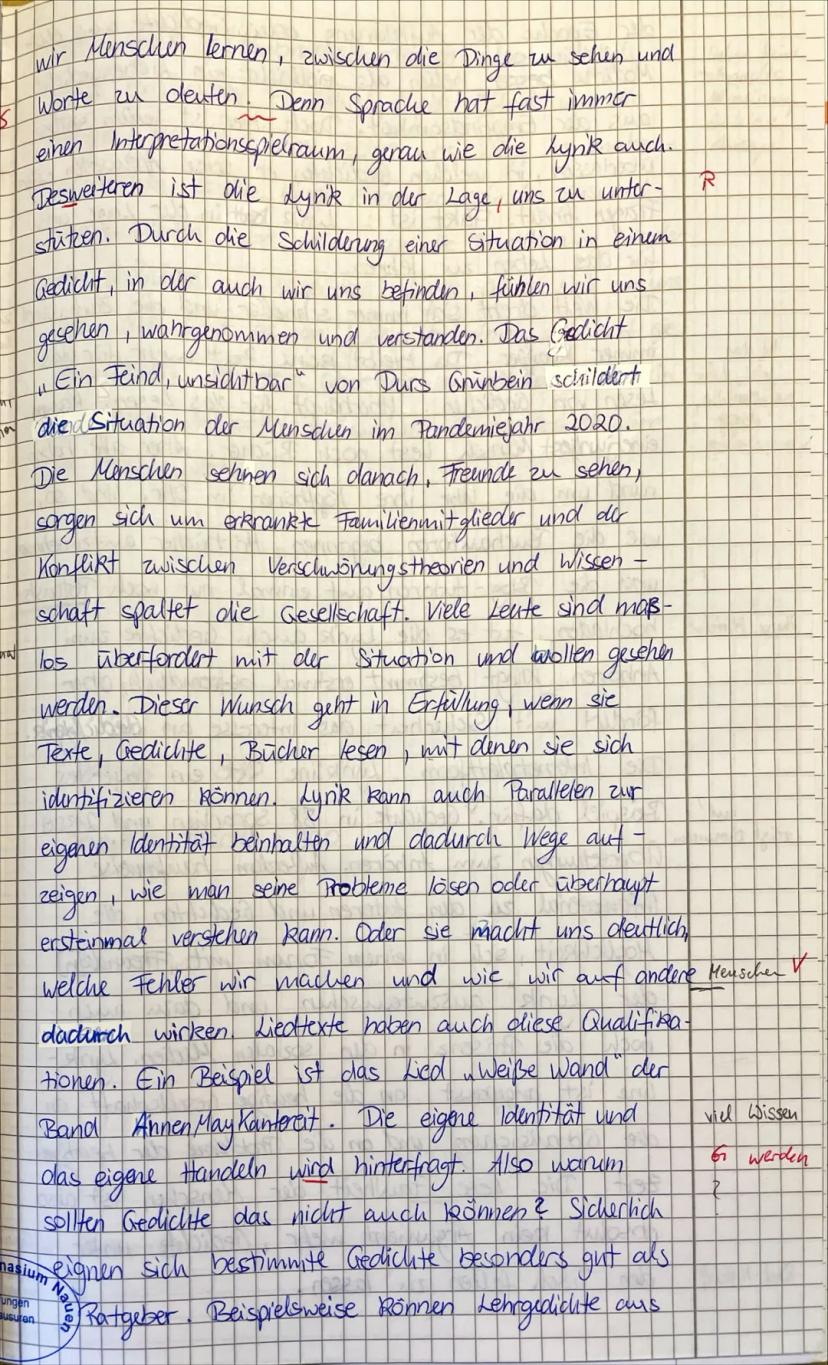 wir Menschen lernen, zwischen die Dinge zu sehen und
Worte zu deuten. Denn Sprache hat fast immer
S
einen Interpretationsspielraum, genau wie die Lyrik auch.
Desweiteren ist die Lyrik in der Lage, uns zu unter-
R
stützen. Durch die Schilderung einer Situation in einem
Gedicht, in der auch wir uns befinden, fühlen wir uns
gesehen, wahrgenommen und verstanden. Das Gedicht
„Ein Feind, unsichtbar" von Durs Grünbein schildert
die Situation der Menschen im Pandemiejahr 2020.
Die Menschen sehnen sich danach, Freunde zu sehen,
sorgen sich um erkrankte Familienmitglieder und der
Konflikt zwischen Verschwörungstheorien und Wissen-
schaft spaltet die Gesellschaft. Viele Leute sind maß-
los überfordert mit der Situation und wollen gesehen
werden. Dieser Wunsch geht in Erfüllung, wenn sie
Texte, Gedichte, Bücher lesen, mit denen sie sich
identifizieren können. Lyrik kann auch Parallelen zur
eigenen Identität beinhalten und dadurch Wege auf-
zeigen, wie man seine Probleme lösen oder überhaupt
ersteinmal verstehen kann. Oder sie macht uns deutlich,
welche Fehler wir machen und wie wir auf andere Menschen V
dadurch wirken. Liedtexte haben auch diese Qualifika-
tionen. Ein Beispiel ist das Lied „Weiße Wand" der
Band AnnenMayKantereit. Die eigene Identität und
viel Wissen
das eigene Handeln wird hinterfragt. Also warum
Gr werden
?
sollten Gedichte das nicht auch können? Sicherlich
eignen sich bestimmte Gedichte besonders gut als
Ratgeber. Beispielsweise können Lehrgedichte aus
nasium Nauen
ungen
ausuren